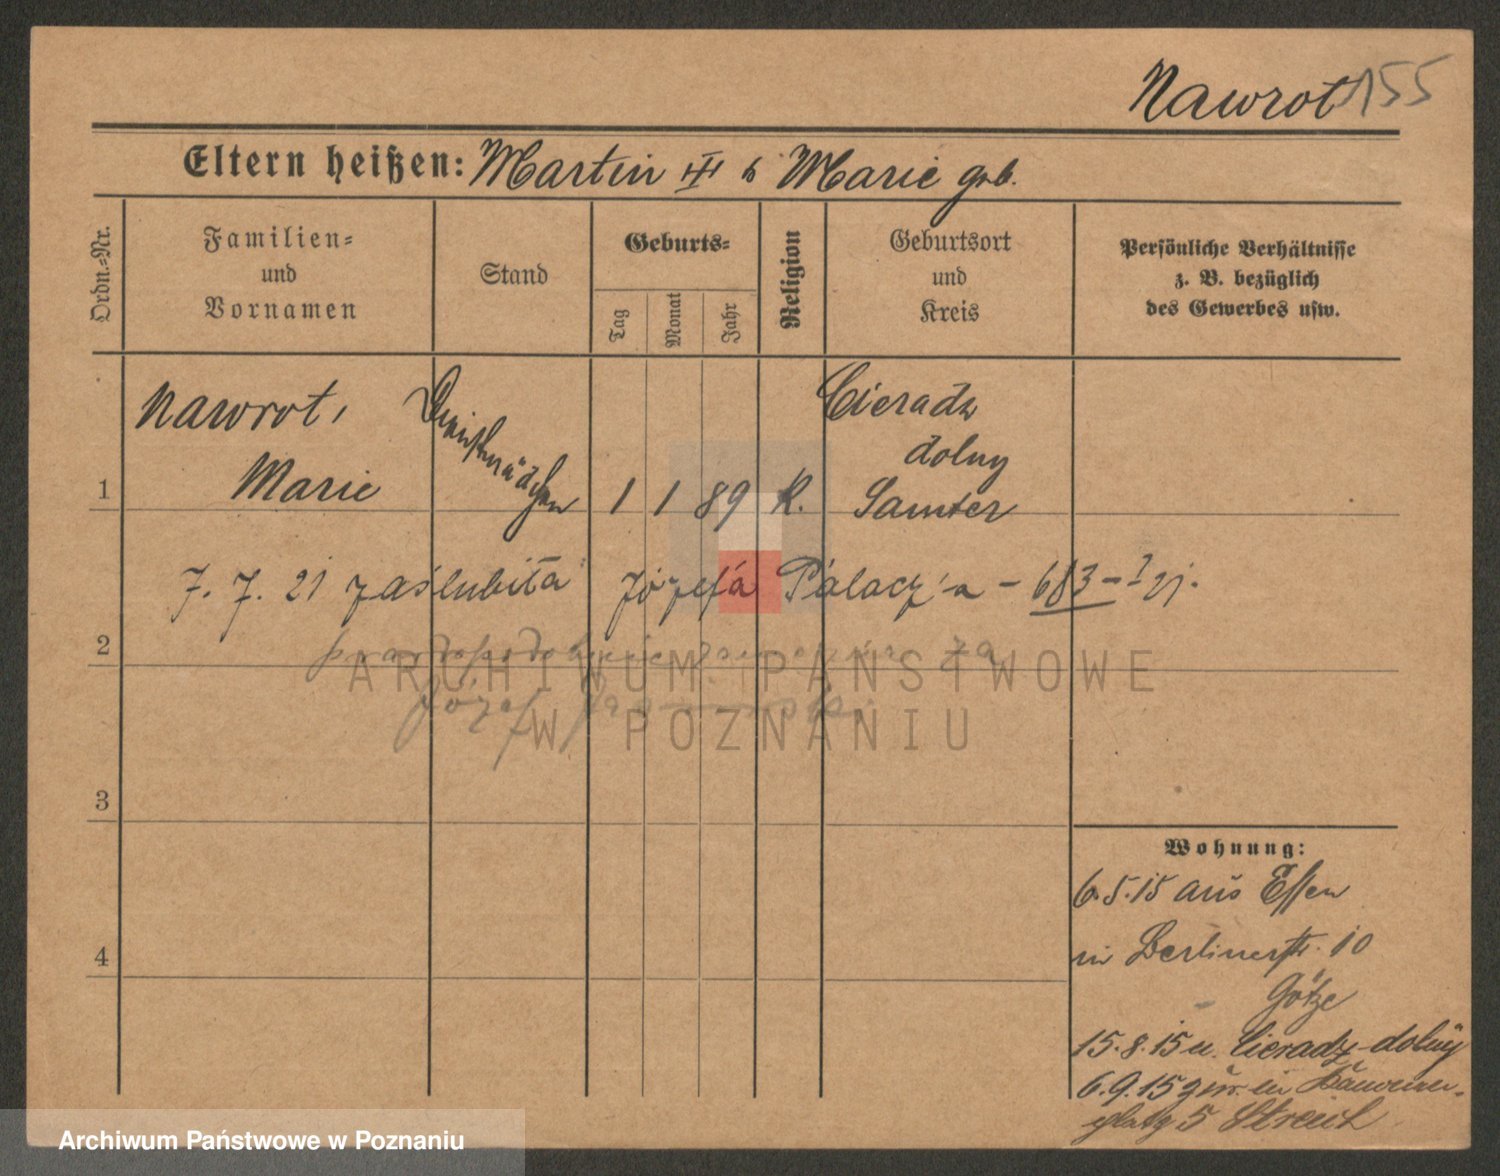 Nawrot 155
Eltern heißen: Martin III & Marie geb.
Ordn.-Nr.
Familien- und Vornamen
Stand
Geburts-
Tag
Monat
Jahr
Religion
Geburtsort und Kreis
Persönliche Verhältnisse
z. B. bezüglich
des Gewerbes usw.
1
Nawrot,
Marie
Dienstmädchen
1 1 89 K.
Cieradz
dolny
Samter
7. 7. 21 zaślubiła Józefa Pałacz'a – 683 –
2
Józef
3
4
Wohnung:
6.5.15 aus Essen
in Berlinerstr. 10
Götze
15.8.15 n. Cieradz-dolny
6.9.15 zur. in
platz 5 Streich
ARCHIWUM PAŃSTWOWE
W POZNANIU
Archiwum Państwowe w Poznaniu